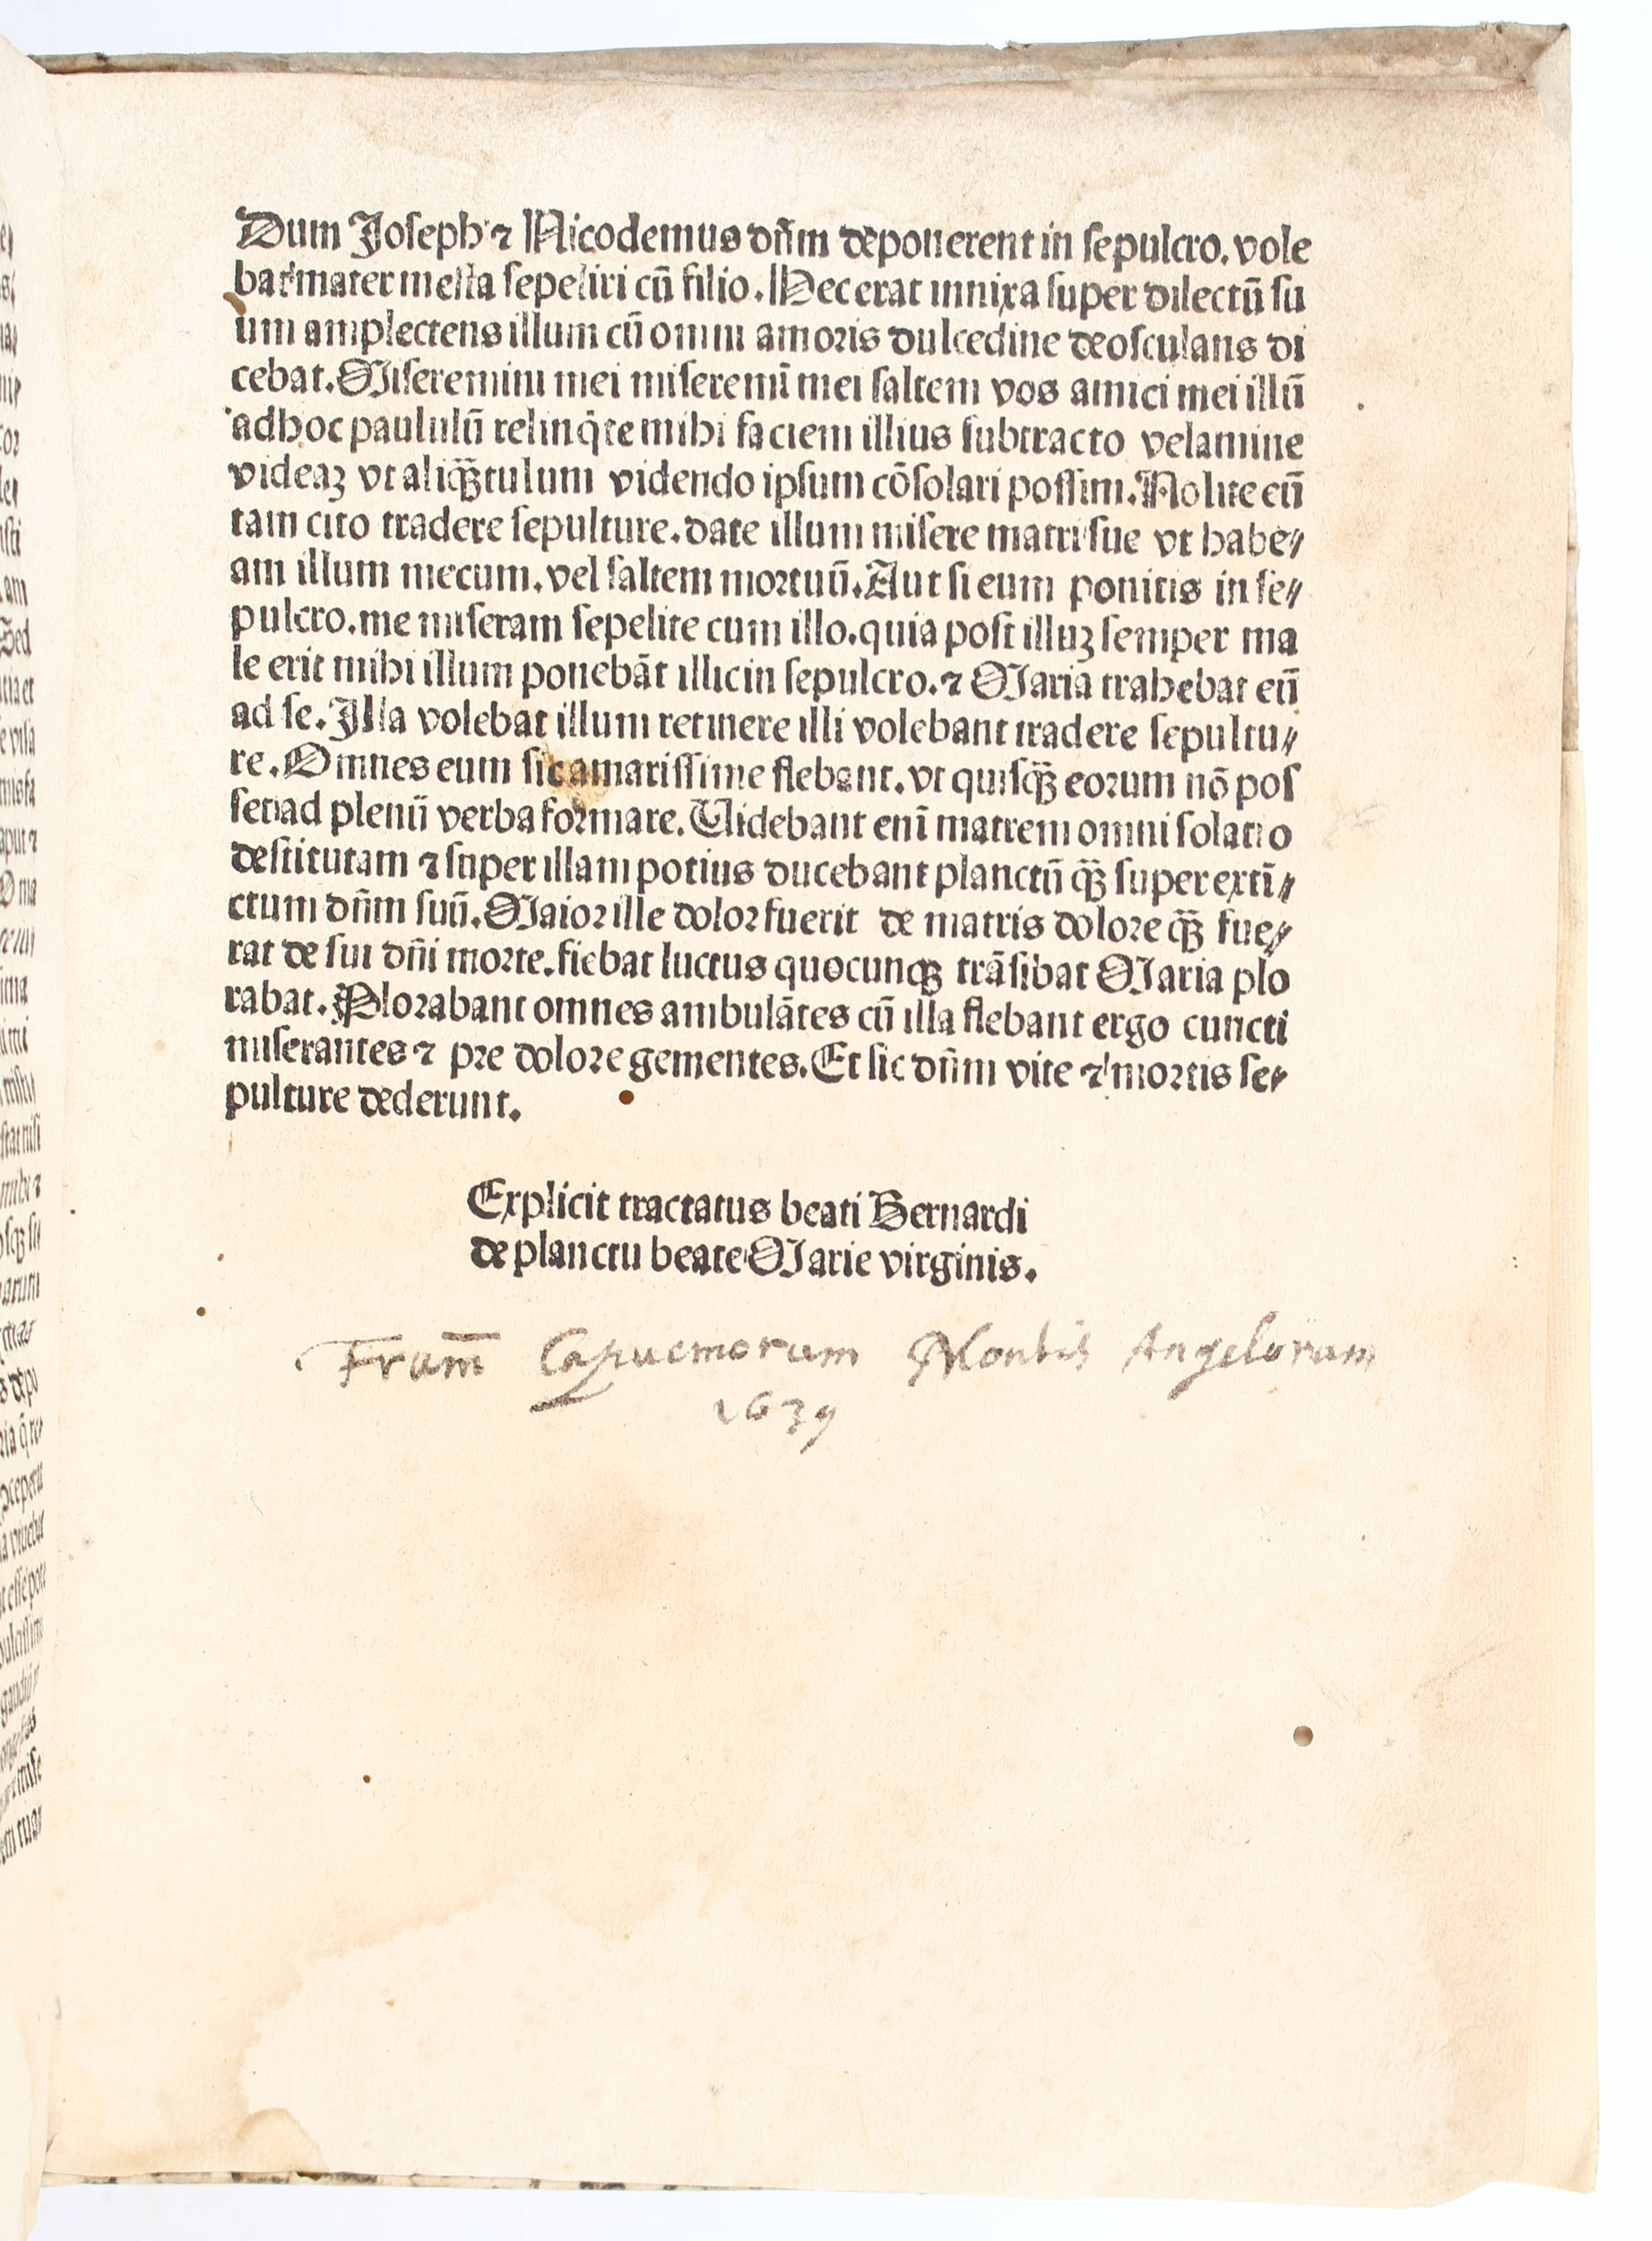 Dum Joseph ⁊ Nicodemus dñm deponerent in sepulcro. vole
bat mater mesta sepeliri cũ filio. Hec erat innixa super dilectũ su
um amplectens illum cũ omni amoris dulcedine deosculans di
cebat. Miseremini mei miseremĩ mei saltem vos amici mei illũ
adhoc paululũ relinq̃te mihi faciem illius subtracto velamine
videaꝫ vt aliq̃ꝫtulum videndo ipsum cõsolari possim. Nolite eũ
tam cito tradere sepulture. date illum misere matri sue vt habe⸗
am illum mecum. vel saltem mortuũ. Aut si eum ponitis in se⸗
pulcro. me miseram sepelite cum illo. quia post illuꝫ semper ma
le erit mihi illum ponebãt illic in sepulcro. ⁊ Maria trahebat eũ
ad se. Illa volebat illum retinere illi volebant tradere sepultu⸗
re. Omnes eum sic amarissime flebant. vt quisq̃ꝫ eorum nõ pos
set ad plenũ verba formare. Videbant enĩ matrem omni solatio
destitutam ⁊ super illam potius ducebant planctũ q̃ꝫ super extĩ⸗
ctum dñm suũ. Maior ille dolor fuerit de matris dolore q̃ꝫ fue⸗
rat de sui dñi morte. fiebat luctus quocunqꝫ trãsibat Maria plo
rabat. Plorabant omnes ambulãtes cũ illa flebant ergo cuncti
miserantes ⁊ pre dolore gementes. Et sic dñm vite ⁊ mortis se⸗
pulture dederunt.
Explicit tractatus beati Bernardi
de planctu beate Marie virginis.
Fram̄ Capucinorum Montis Angelorum
1639